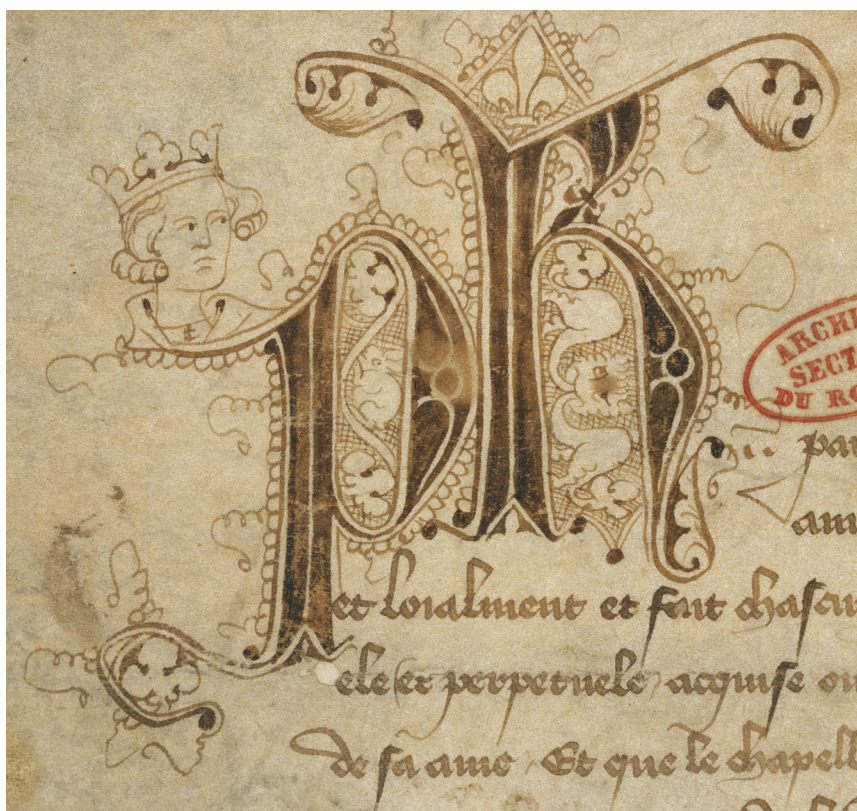 Ph
ARCHI
SECT
DU RO
par
et loialment et fait chascun
ele et perpetuele acquise ou
de sa ame Et que le chapell